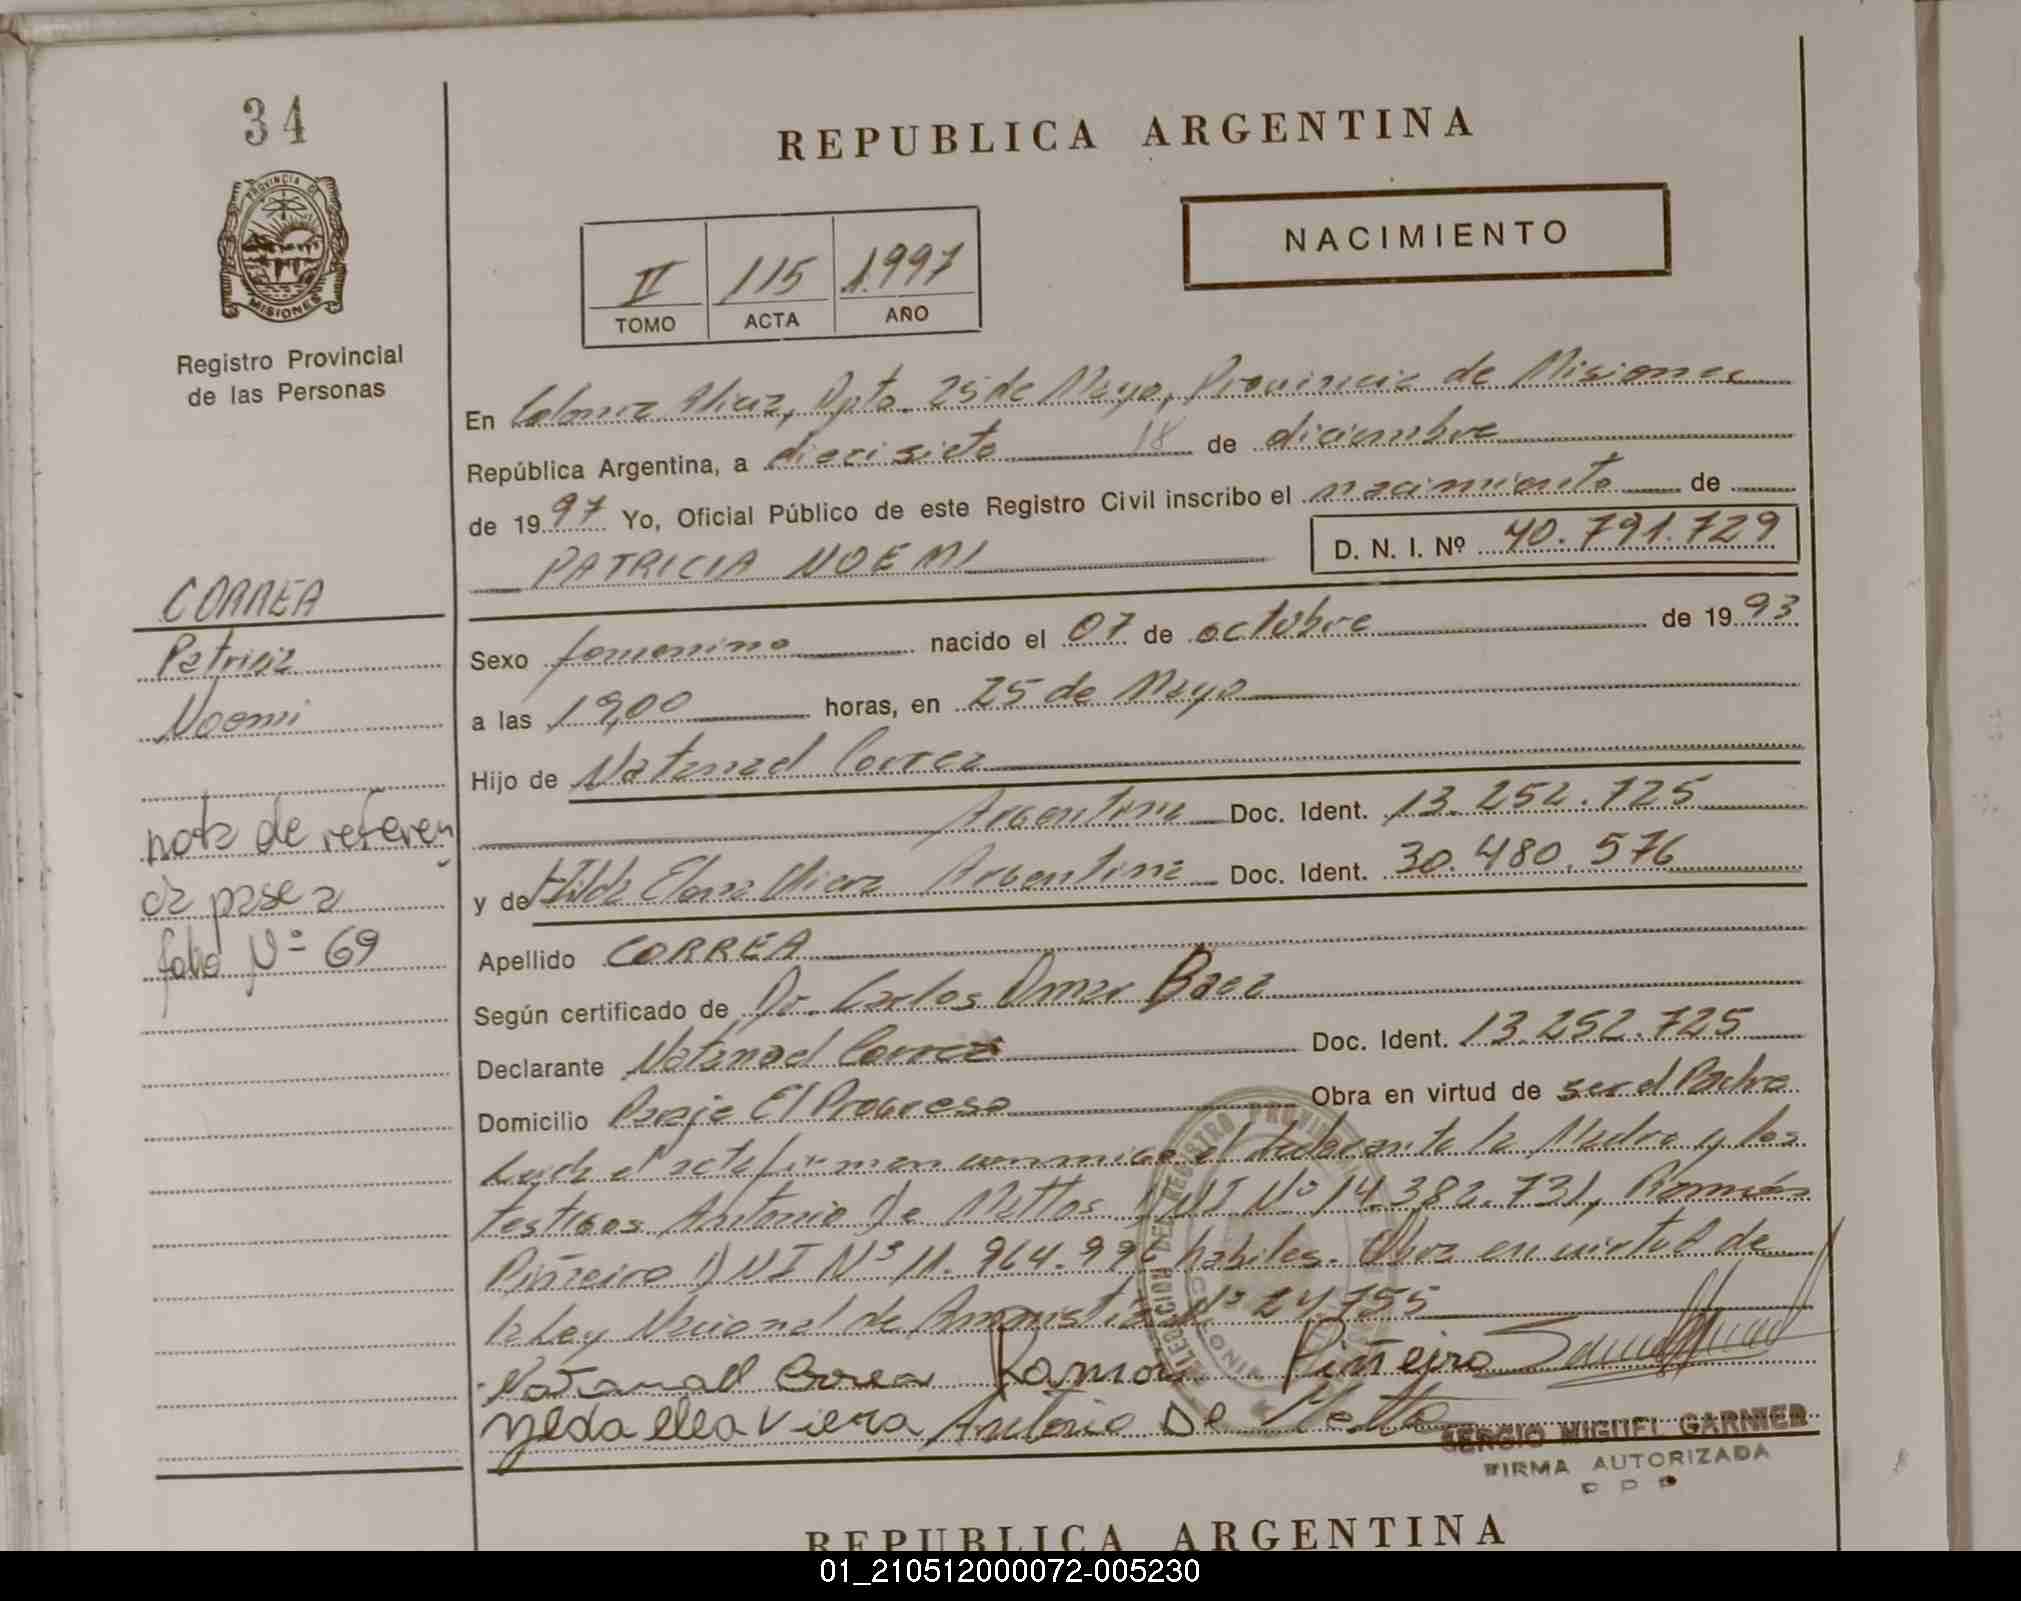 34
PROVINCIA DE
MISIONES
Registro Provincial
de las Personas
REPUBLICA ARGENTINA
NACIMIENTO
II 115 1.997
TOMO ACTA AÑO
En Colonia Alicia, Dpto. 25 de Mayo, Provincia de Misiones
República Argentina, a diecisiete 18 de diciembre
de 1997 Yo, Oficial Público de este Registro Civil inscribo el nacimiento de
PATRICIA NOEMI
D. N. I. Nº 40.791.729
CORREA
Patricia
Noemi
nota de referen
cia pase a
folio Nº 69
Sexo femenino nacido el 07 de octubre de 1993
a las 19,00 horas, en 25 de Mayo
Hijo de Natanael Correa
Argentina Doc. Ident. 13.252.725
y de Hilda Elena Viera Argentina Doc. Ident. 30.480.576
Apellido CORREA
Según certificado de Dr. Carlos Omar Baez
Declarante Natanael Correa Doc. Ident. 13.252.725
Domicilio Paraje El Progreso Obra en virtud de ser el Padre
Leida el acta firman conmigo el declarante la Madre y los
testigos Antonio De Mattos DNI Nº 14.382.731, Ramón
Piñeiro DNI Nº 11.964.996 habiles. Obra en virtud de
la Ley Nacional de Amnistia Nº 24755
Natanael Correa Ramon Piñeiro
Antonio De
SERGIO MIGUEL GARNIER
FIRMA AUTORIZADA
REPUBLICA ARGENTINA
01_210512000072-005230